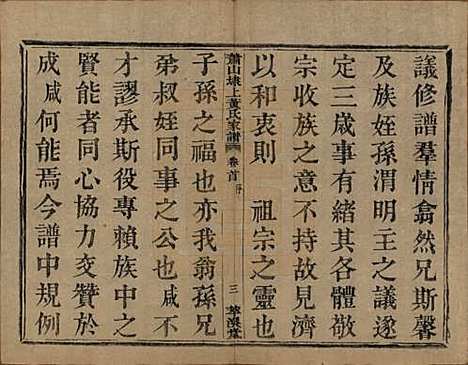 議修譜羣情翕然兄斯馨
及族姪孫渭明主之議遂
定三歲事有緒其各體敬
宗收族之意不持故見濟
以和衷則 祖宗之靈也
蕭山埭上黃氏家譜 卷首 序 三
子孫之福也亦我翁孫兄
弟叔姪同事之公也咸不
才謬承斯役專賴族中之
賢能者同心協力交贊於
成咸何能焉今譜中規例